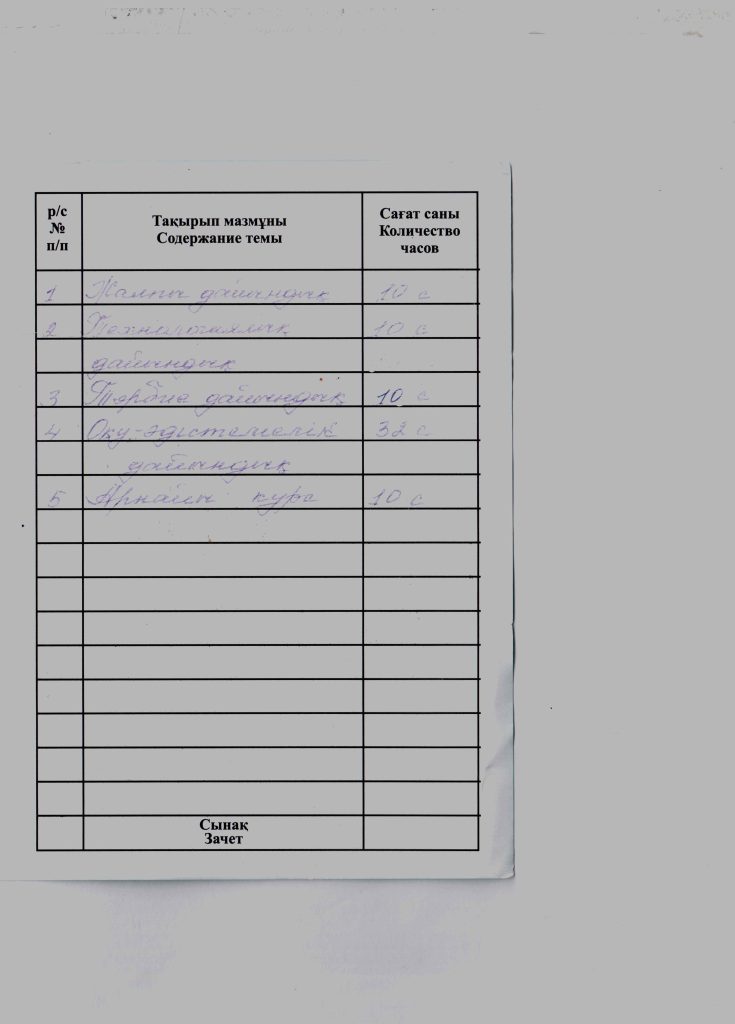 р/с
№
п/п
Тақырып мазмұны
Содержание темы
Сағат саны
Количество
часов
1 Жалпы дайындық 10 с
2 Технологиялық 10 с
дайындық
3 Тәрбие дайындық 10 с
4 Оқу-әдістемелік 32 с
дайындық
5 Арнайы курс 10 с
Сынақ
Зачет